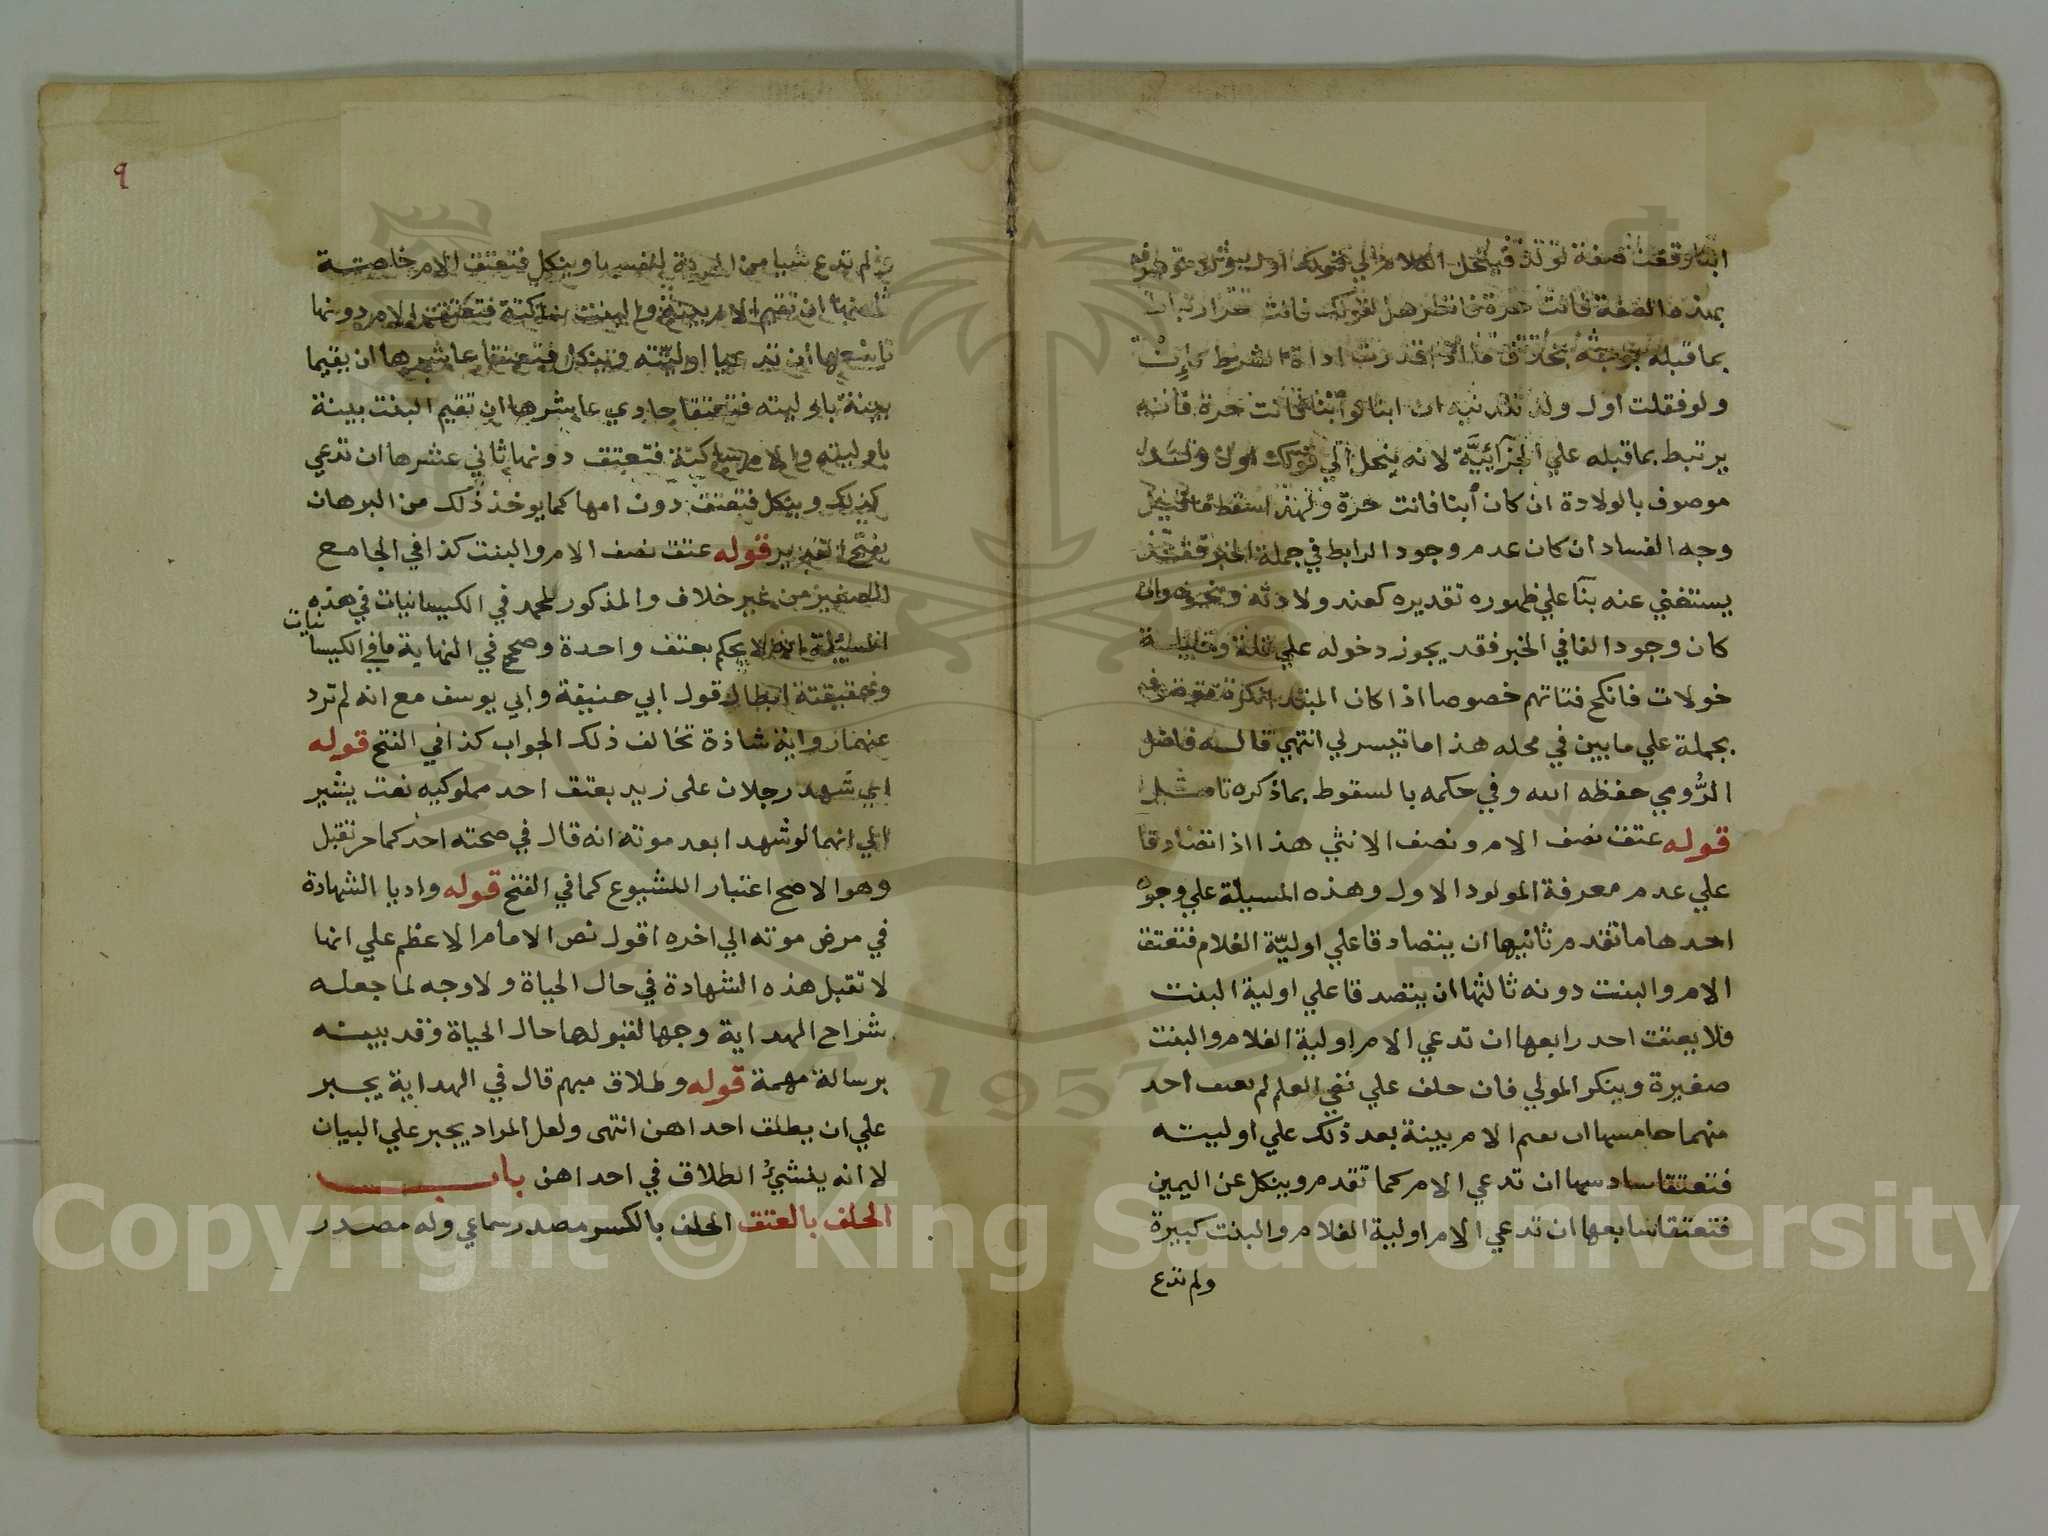 ابنا وقعت صفة لولد فينحل الكلام الي قولك اول
بهذه الصفة فانت حرة فانظر هل لقولك فانت حرة ارتباط
بما قبله بخلاف ما اذا قدرت اداة الشرط
ولو فقلت اول ولد تلدينه ان ابنا فانت حرة فانه
يرتبط بما قبله علي الجزآئيَّة لانه ينحل الي قولك اول ولد
موصوف بالولادة ان كان ابنا فانت حرة ولهذا اسقط ما قيل
وجه الفساد ان كان عدم وجود الرابط في جملة الخبر فقد
يستغني عنه بنآ علي ظهوره تقديره كعند ولادته ونحوه وان
كان وجود الفا في الخبر فقد يجوز دخوله علي قلة وقايلة
خولان فانكح فتاتهم خصوصا اذا كان المبتدا نكرة موصوفة
بجملة علي ما بين في محله هذا ما تيسر لي انتهي قاله فاضل
الرُّومي حفظه الله وفي حكمه بالسقوط بما ذكره تامل
قوله عتق نصف الام ونصف الانثي هذا اذا تصادقا
علي عدم معرفة المولود الاول وهذه المسيلة علي وجوه
احدها ما تقدم ثانيها ان يتصادقا علي اوليّة الغلام فتعتق
الام والبنت دونه ثالثها ان يتصدقا علي اولية البنت
فلا يعتق احد رابعها ان تدعي الام اولية الغلام والبنت
صغيرة وينكر المولي فان حلف علي نفي العلم لم يعتق احد
منهما خامسها ان تقيم الام بينة بعد ذلك علي اوليته
فتعتقا سادسها ان تدعي الام كما تقدم وينكل عن اليمين
فتعتقا سابعها ان تدعي الام اولية الغلام والبنت كبيرة
ولم تدع
٩
ولم تدع شيا من الحرية لنفسها وينكل فتعتق الام خاصة
ثامنها ان تقيم الام بينة والبنت ساكتة فتعتق الام دونها
تاسعها ان تدعيا اوليته وينكل فتعتقا عاشرها ان يقيما
بينة باوليته فتعتقا حادي عاشرها ان تقيم البنت بينة
باوليته والام ساكتة فتعتق دونها ثاني عشرها ان تدعي
كذلك وينكل فتعتق دون امها كما يوخذ ذلك من البرهان
بفتح القدير قوله عتق نصف الام والبنت كذا في الجامع
الصغير من غير خلاف والمذكور لمحمد في الكيسانيات في هذه
المسيلة انه لا يحكم بعتق واحدة وصحح في النهاية ما في الكيسا
نيات
وحقيقته ابطال قول ابي حنيفة وابي يوسف مع انه لم ترد
عنهما رواية شاذة تخالف ذلك الجواب كذا في الفتح قوله
اي شهد رجلان على زيد بعتق احد مملوكيه نعت يشير
الي انهما لو شهدا بعد موته انه قال في صحته احدكما حر تقبل
وهو الاصح اعتبار اللشيوع كما في الفتح قوله واديا الشهادة
في مرض موته الي اخره اقول نص الامام الاعظم علي انها
لا تقبل هذه الشهادة في حال الحياة ولا وجه لما جعله
شراح الهداية وجها لقبولها حال الحياة وقد بينته
برسالة مهمة قوله وطلاق مبهم قال في الهداية يجبر
علي ان يطلق احداهن انتهى ولعل المراد يجبر علي البيان
لا انه ينشيُ الطلاق في احداهن باب
الحلف بالعتق الحلف بالكسر مصدر سماعي وله مصدر
Copyright © King Saud University
1957